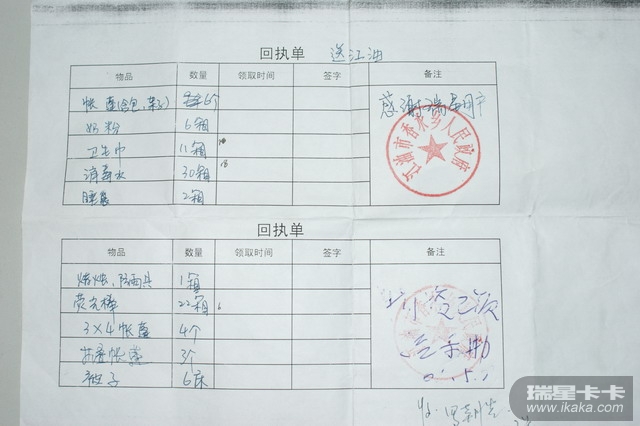 回执单 送江油
物品 数量 领取时间 签字 备注
帐篷(含包,架子) 6个
奶粉 6箱
卫生巾 11箱
消毒水 30箱
睡袋 2箱
感谢瑞星用户
江油市香水乡人民政府
回执单
物品 数量 领取时间 签字 备注
蜡烛, 防雨具 1箱
荧光棒 22箱
3×4帐篷 4个
帐篷 3个
被子 6床
瑞星卡卡
www.ikaka.com